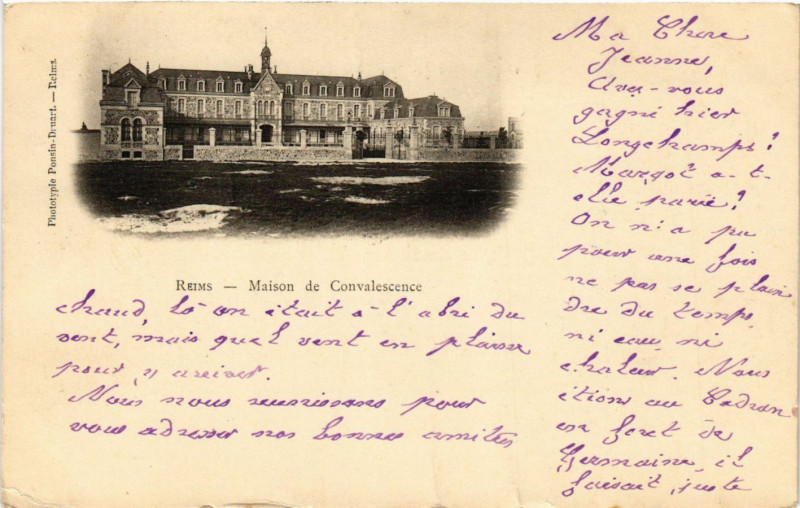 Phototypie Ponsin-Druart. — Reims.
REIMS — Maison de Convalescence
Ma Chere
Jeanne,
Avez-vous
gagné hier
Longchamps?
Margot a-t-
elle parié?
On n'a pu
pour une fois
ne pas se plain
dre du temps
ni eau, ni
chaleur. Nous
étions au Cadran
en foret de
Germaine, il
faisait juste
chaud, là on était à l'abri du
vent, mais quel vent en plaine
pour y arriver.
Nous nous reunissons pour
vous adresser nos bonnes amitiés